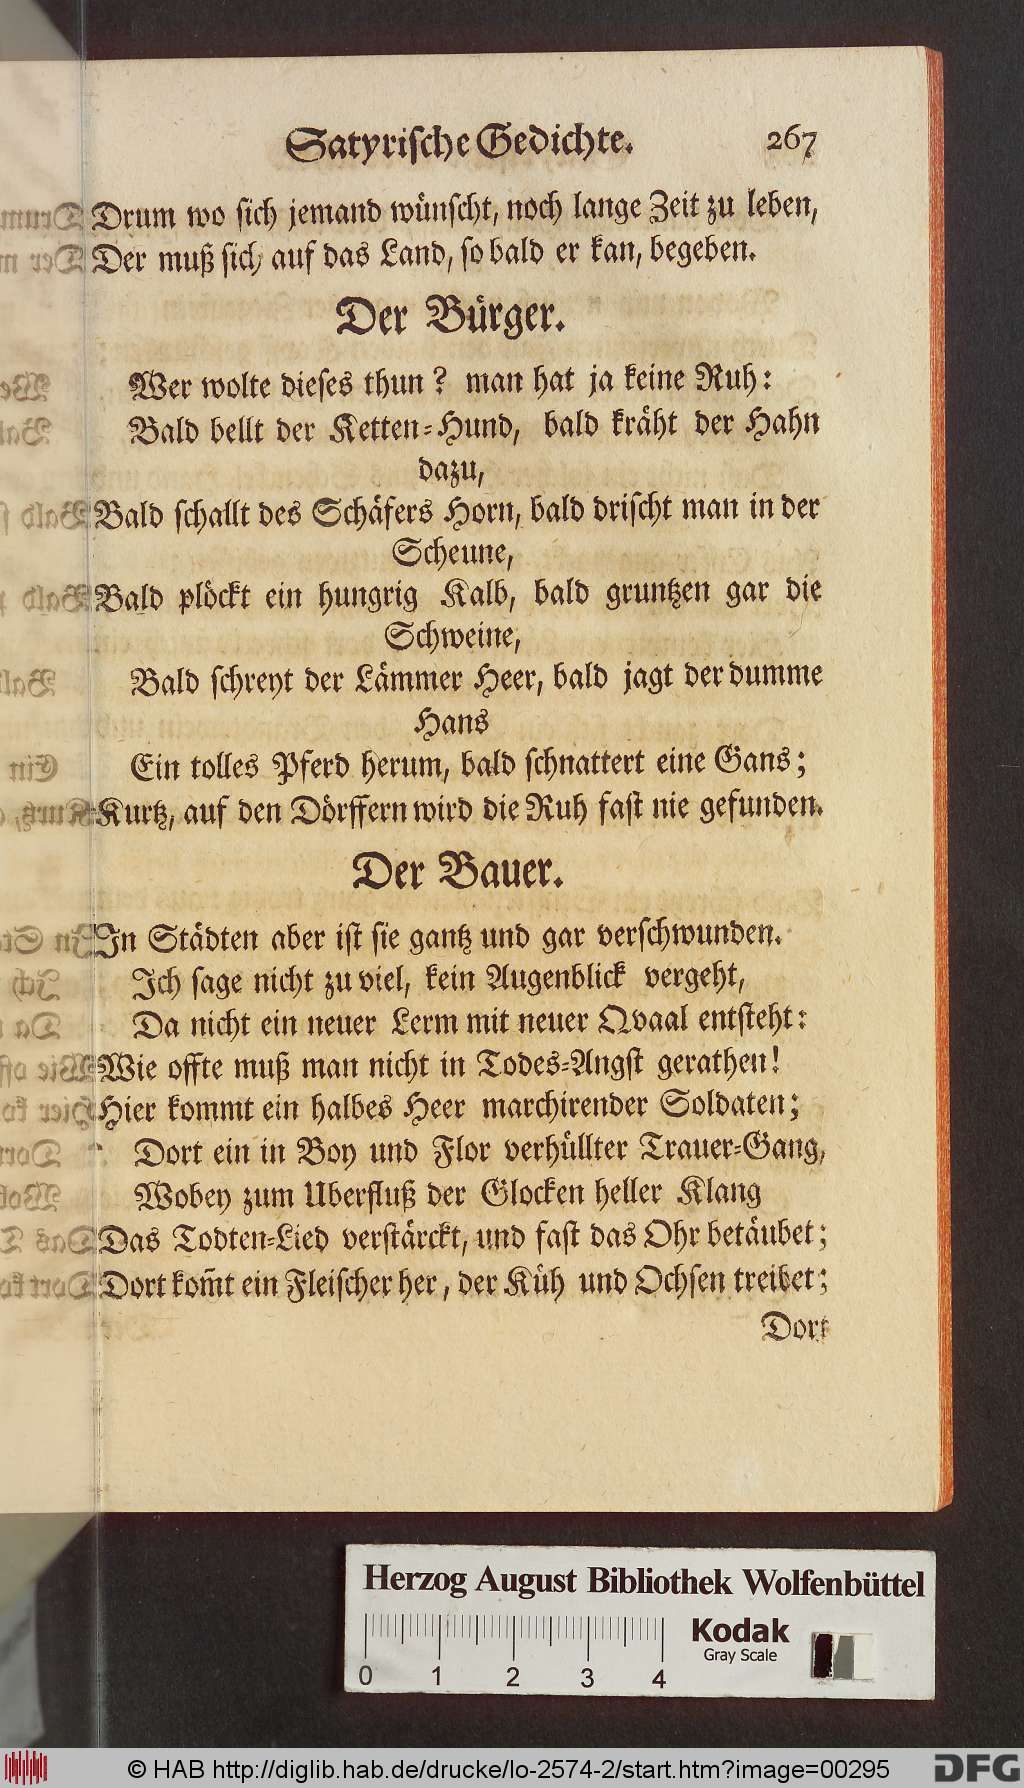 Satyrische Gedichte. 267
Drum wo sich jemand wünscht, noch lange Zeit zu leben,
Der muß sich auf das Land, so bald er kan, begeben.
Der Bürger.
Wer wolte dieses thun? man hat ja keine Ruh:
Bald bellt der Ketten-Hund, bald kräht der Hahn
dazu,
Bald schallt des Schäfers Horn, bald drischt man in der
Scheune,
Bald plöckt ein hungrig Kalb, bald gruntzen gar die
Schweine,
Bald schreyt der Lämmer Heer, bald jagt der dumme
Hans
Ein tolles Pferd herum, bald schnattert eine Gans;
Kurtz, auf den Dörffern wird die Ruh fast nie gefunden.
Der Bauer.
In Städten aber ist sie gantz und gar verschwunden.
Ich sage nicht zu viel, kein Augenblick vergeht,
Da nicht ein neuer Lerm mit neuer Qvaal entsteht:
Wie offte muß man nicht in Todes-Angst gerathen!
Hier kommt ein halbes Heer marchirender Soldaten;
Dort ein in Boy und Flor verhüllter Trauer-Gang,
Wobey zum Uberfluß der Glocken heller Klang
Das Todten-Lied verstärckt, und fast das Ohr betäubet;
Dort kom̃t ein Fleischer her, der Küh und Ochsen treibet;
Dort
Herzog August Bibliothek Wolfenbüttel
Kodak
Gray Scale
0 1 2 3 4
© HAB http://diglib.hab.de/drucke/lo-2574-2/start.htm?image=00295
DFG